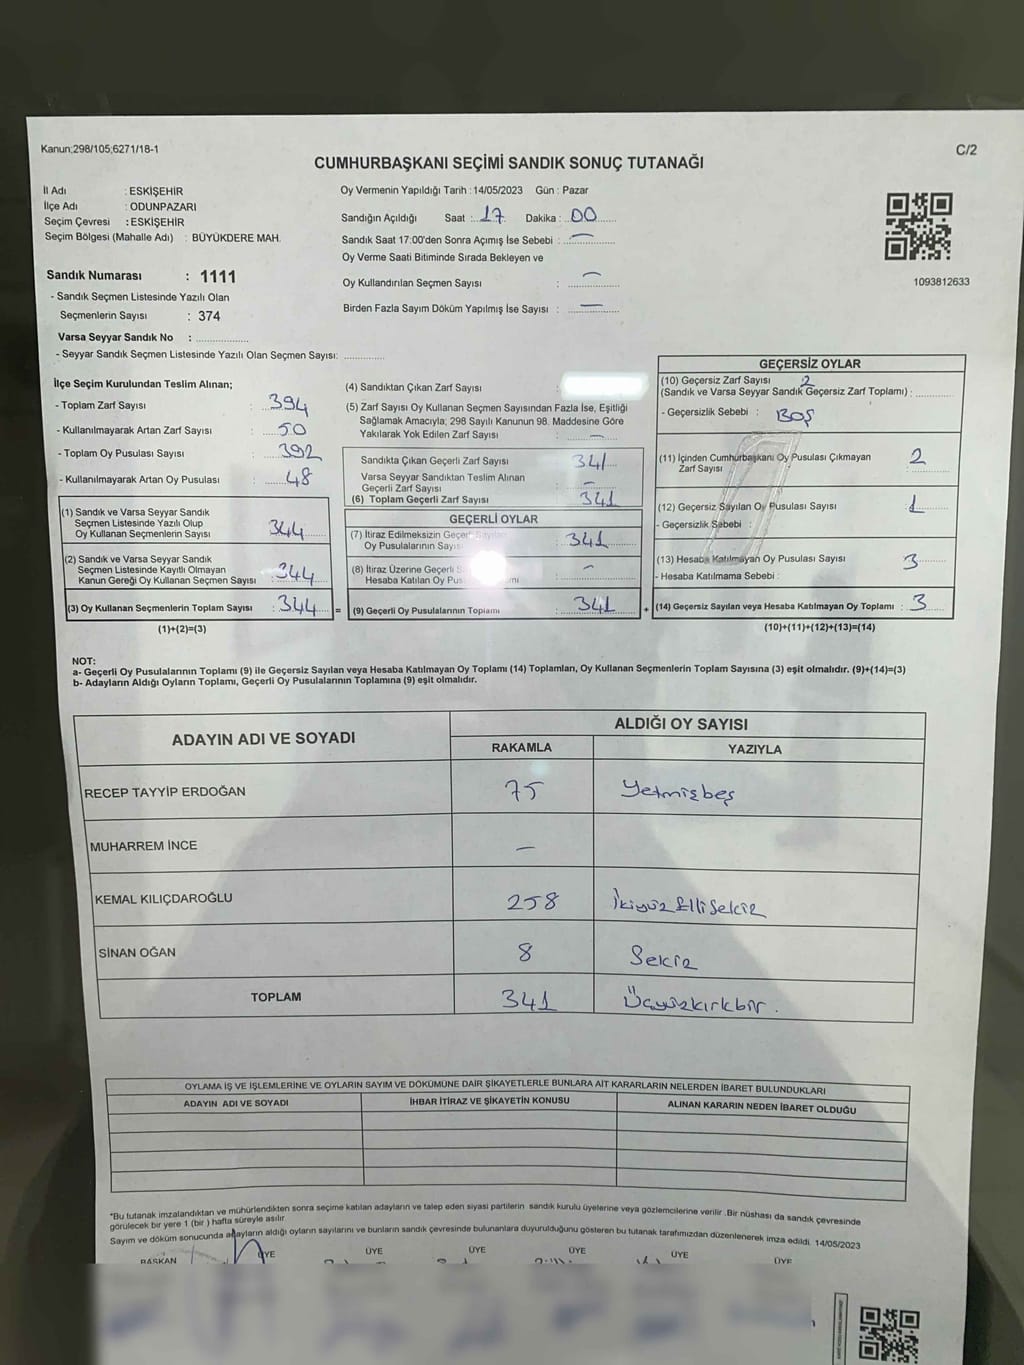 Kanun;298/105;6271/18-1
C/2
CUMHURBAŞKANI SEÇİMİ SANDIK SONUÇ TUTANAĞI
İl Adı : ESKİŞEHİR
İlçe Adı : ODUNPAZARI
Seçim Çevresi : ESKİŞEHİR
Seçim Bölgesi (Mahalle Adı) : BÜYÜKDERE MAH.
Sandık Numarası : 1111
- Sandık Seçmen Listesinde Yazılı Olan
Seçmenlerin Sayısı : 374
Varsa Seyyar Sandık No : ..............
- Seyyar Sandık Seçmen Listesinde Yazılı Olan Seçmen Sayısı: ............
Oy Vermenin Yapıldığı Tarih : 14/05/2023 Gün : Pazar
Sandığın Açıldığı Saat : 17 Dakika : 00
Sandık Saat 17:00'den Sonra Açımış İse Sebebi : —
Oy Verme Saati Bitiminde Sırada Bekleyen ve
Oy Kullandırılan Seçmen Sayısı : —
Birden Fazla Sayım Döküm Yapılmış İse Sayısı : —
1093812633
İlçe Seçim Kurulundan Teslim Alınan;
- Toplam Zarf Sayısı : 394
- Kullanılmayarak Artan Zarf Sayısı : 50
- Toplam Oy Pusulası Sayısı : 392
- Kullanılmayarak Artan Oy Pusulası : 48
(1) Sandık ve Varsa Seyyar Sandık
Seçmen Listesinde Yazılı Olup
Oy Kullanan Seçmenlerin Sayısı : 344
(2) Sandık ve Varsa Seyyar Sandık
Seçmen Listesinde Kayıtlı Olmayan
Kanun Gereği Oy Kullanan Seçmen Sayısı : 344
(3) Oy Kullanan Seçmenlerin Toplam Sayısı : 344 =
(1)+(2)=(3)
(4) Sandıktan Çıkan Zarf Sayısı :
(5) Zarf Sayısı Oy Kullanan Seçmen Sayısından Fazla İse, Eşitliği
Sağlamak Amacıyla; 298 Sayılı Kanunun 98. Maddesine Göre
Yakılarak Yok Edilen Zarf Sayısı : —
Sandıkta Çıkan Geçerli Zarf Sayısı 341
Varsa Seyyar Sandıktan Teslim Alınan
Geçerli Zarf Sayısı —
(6) Toplam Geçerli Zarf Sayısı 341
GEÇERLİ OYLAR
(7) İtiraz Edilmeksizin Geçerli Sayılan
Oy Pusulalarının Sayısı : 341
(8) İtiraz Üzerine Geçerli
Hesaba Katılan Oy : —
(9) Geçerli Oy Pusulalarının Toplamı : 341 +
GEÇERSİZ OYLAR
(10) Geçersiz Zarf Sayısı 2
(Sandık ve Varsa Seyyar Sandık Geçersiz Zarf Toplamı) : ............
- Geçersizlik Sebebi : BOŞ
(11) İçinden Cumhurbaşkanı Oy Pusulası Çıkmayan
Zarf Sayısı : 2
(12) Geçersiz Sayılan Oy Pusulası Sayısı : 1
- Geçersizlik Sebebi :
(13) Hesaba Katılmayan Oy Pusulası Sayısı : 3
- Hesaba Katılmama Sebebi :
(14) Geçersiz Sayılan veya Hesaba Katılmayan Oy Toplamı : 3
(10)+(11)+(12)+(13)=(14)
NOT:
a- Geçerli Oy Pusulalarının Toplamı (9) ile Geçersiz Sayılan veya Hesaba Katılmayan Oy Toplamı (14) Toplamları, Oy Kullanan Seçmenlerin Toplam Sayısına (3) eşit olmalıdır. (9)+(14)=(3)
b- Adayların Aldığı Oyların Toplamı, Geçerli Oy Pusulalarının Toplamına (9) eşit olmalıdır.
ADAYIN ADI VE SOYADI
ALDIĞI OY SAYISI
RAKAMLA YAZIYLA
RECEP TAYYİP ERDOĞAN 75 Yetmişbeş
MUHARREM İNCE —
KEMAL KILIÇDAROĞLU 258 İkiyüzEllisekiz
SİNAN OĞAN 8 Sekiz
TOPLAM 341 Üçyüzkırkbir.
OYLAMA İŞ VE İŞLEMLERİNE VE OYLARIN SAYIM VE DÖKÜMÜNE DAİR ŞİKAYETLERLE BUNLARA AİT KARARLARIN NELERDEN İBARET BULUNDUKLARI
ADAYIN ADI VE SOYADI İHBAR İTİRAZ VE ŞİKAYETİN KONUSU ALINAN KARARIN NEDEN İBARET OLDUĞU
*Bu tutanak imzalandıktan ve mühürlendikten sonra seçime katılan adayların ve talep eden siyasi partilerin sandık kurulu üyelerine veya gözlemcilerine verilir .Bir nüshası da sandık çevresinde
görülecek bir yere 1 (bir ) hafta süreyle asılır
Sayım ve döküm sonucunda adayların aldığı oyların sayılarını ve bunların sandık çevresinde bulunanlara duyurulduğunu gösteren bu tutanak tarafımızdan düzenlenerek imza edildi. 14/05/2023
BAŞKAN ÜYE ÜYE ÜYE ÜYE ÜYE ÜYE